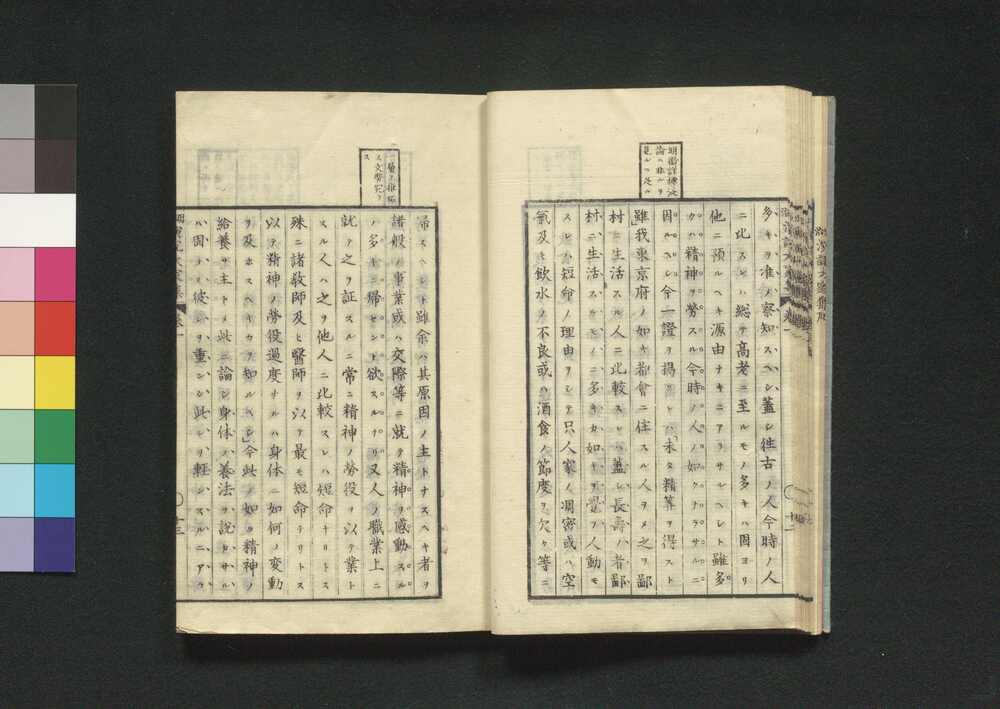 明衛詳博此
論ハ非ルヲ
見ルニ足ル
多キヲ准ノ察知スヘシ蓋シ徃古ノ人今時ノ人
ニ比スレハ総テ高考ニ至ルモノ多キハ固ヨリ
他ニ預ルヘキ源由ナキニアラサルヘシト雖多
クハ精神ヲ勞スル今時ノ人ノ如クナラサルニ
因ルヘシ今一證ヲ揚ニハ未タ精算ヲ得スト
雖我東京府ノ如キ都會ニ住スル人ヲメ之ヲ鄙
村ニ生活スル人ニ比較スレハ蓋シ長壽ハ者鄙
村ニ生活スルモノニ多キカ如キヲ覺フ人動モ
スレハ短命ノ理由ヲシテ只人家ノ凋密或ハ空
氣及ヒ飲水ノ不良或ハ酒食ノ節度ヲ欠ク等ニ
ス文勢宛
ス
帰スヘシト雖余ハ其原因ノ主トナスヘキ者ヲ
諸般ノ事業或ハ交際等ニ就テ精神ヲ感動スル
ノ多キニ帰セント欲スルナリ又人ノ職業上ニ
就テ之ヲ証スルニ常ニ精神ノ勞役ヲ以テ業ト
スル人ハ之ヲ他人ニ比較スレハ短命ナリトス
殊ニ諸教師及ヒ醫師ヲ以テ最モ短命ナリトス
以テ精神ノ勞役過度ナルハ身体ニ如何ノ変動
ヲ及ホスヘキカヲ知ルヘシ今此ノ如ク精神ノ
給養ヲ主トメ此ニ論シ身体ノ養法ヲ説カサル
ハ固ヨリ彼レヲ重ンシ此レヲ輕ンスルニアラ
卷一
十三